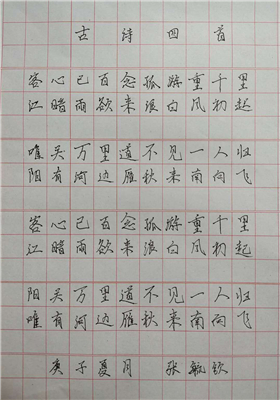 古诗四首
客心已百念孤游重千里
江暗雨欲来浪白风初起
唯关万里道不见一人归
阳有河边雁秋来南向飞
客心已百念孤游重千里
江暗雨欲来浪白风初起
阳关万里道不见一人归
唯有河边雁秋来南向飞
庚子夏月 张